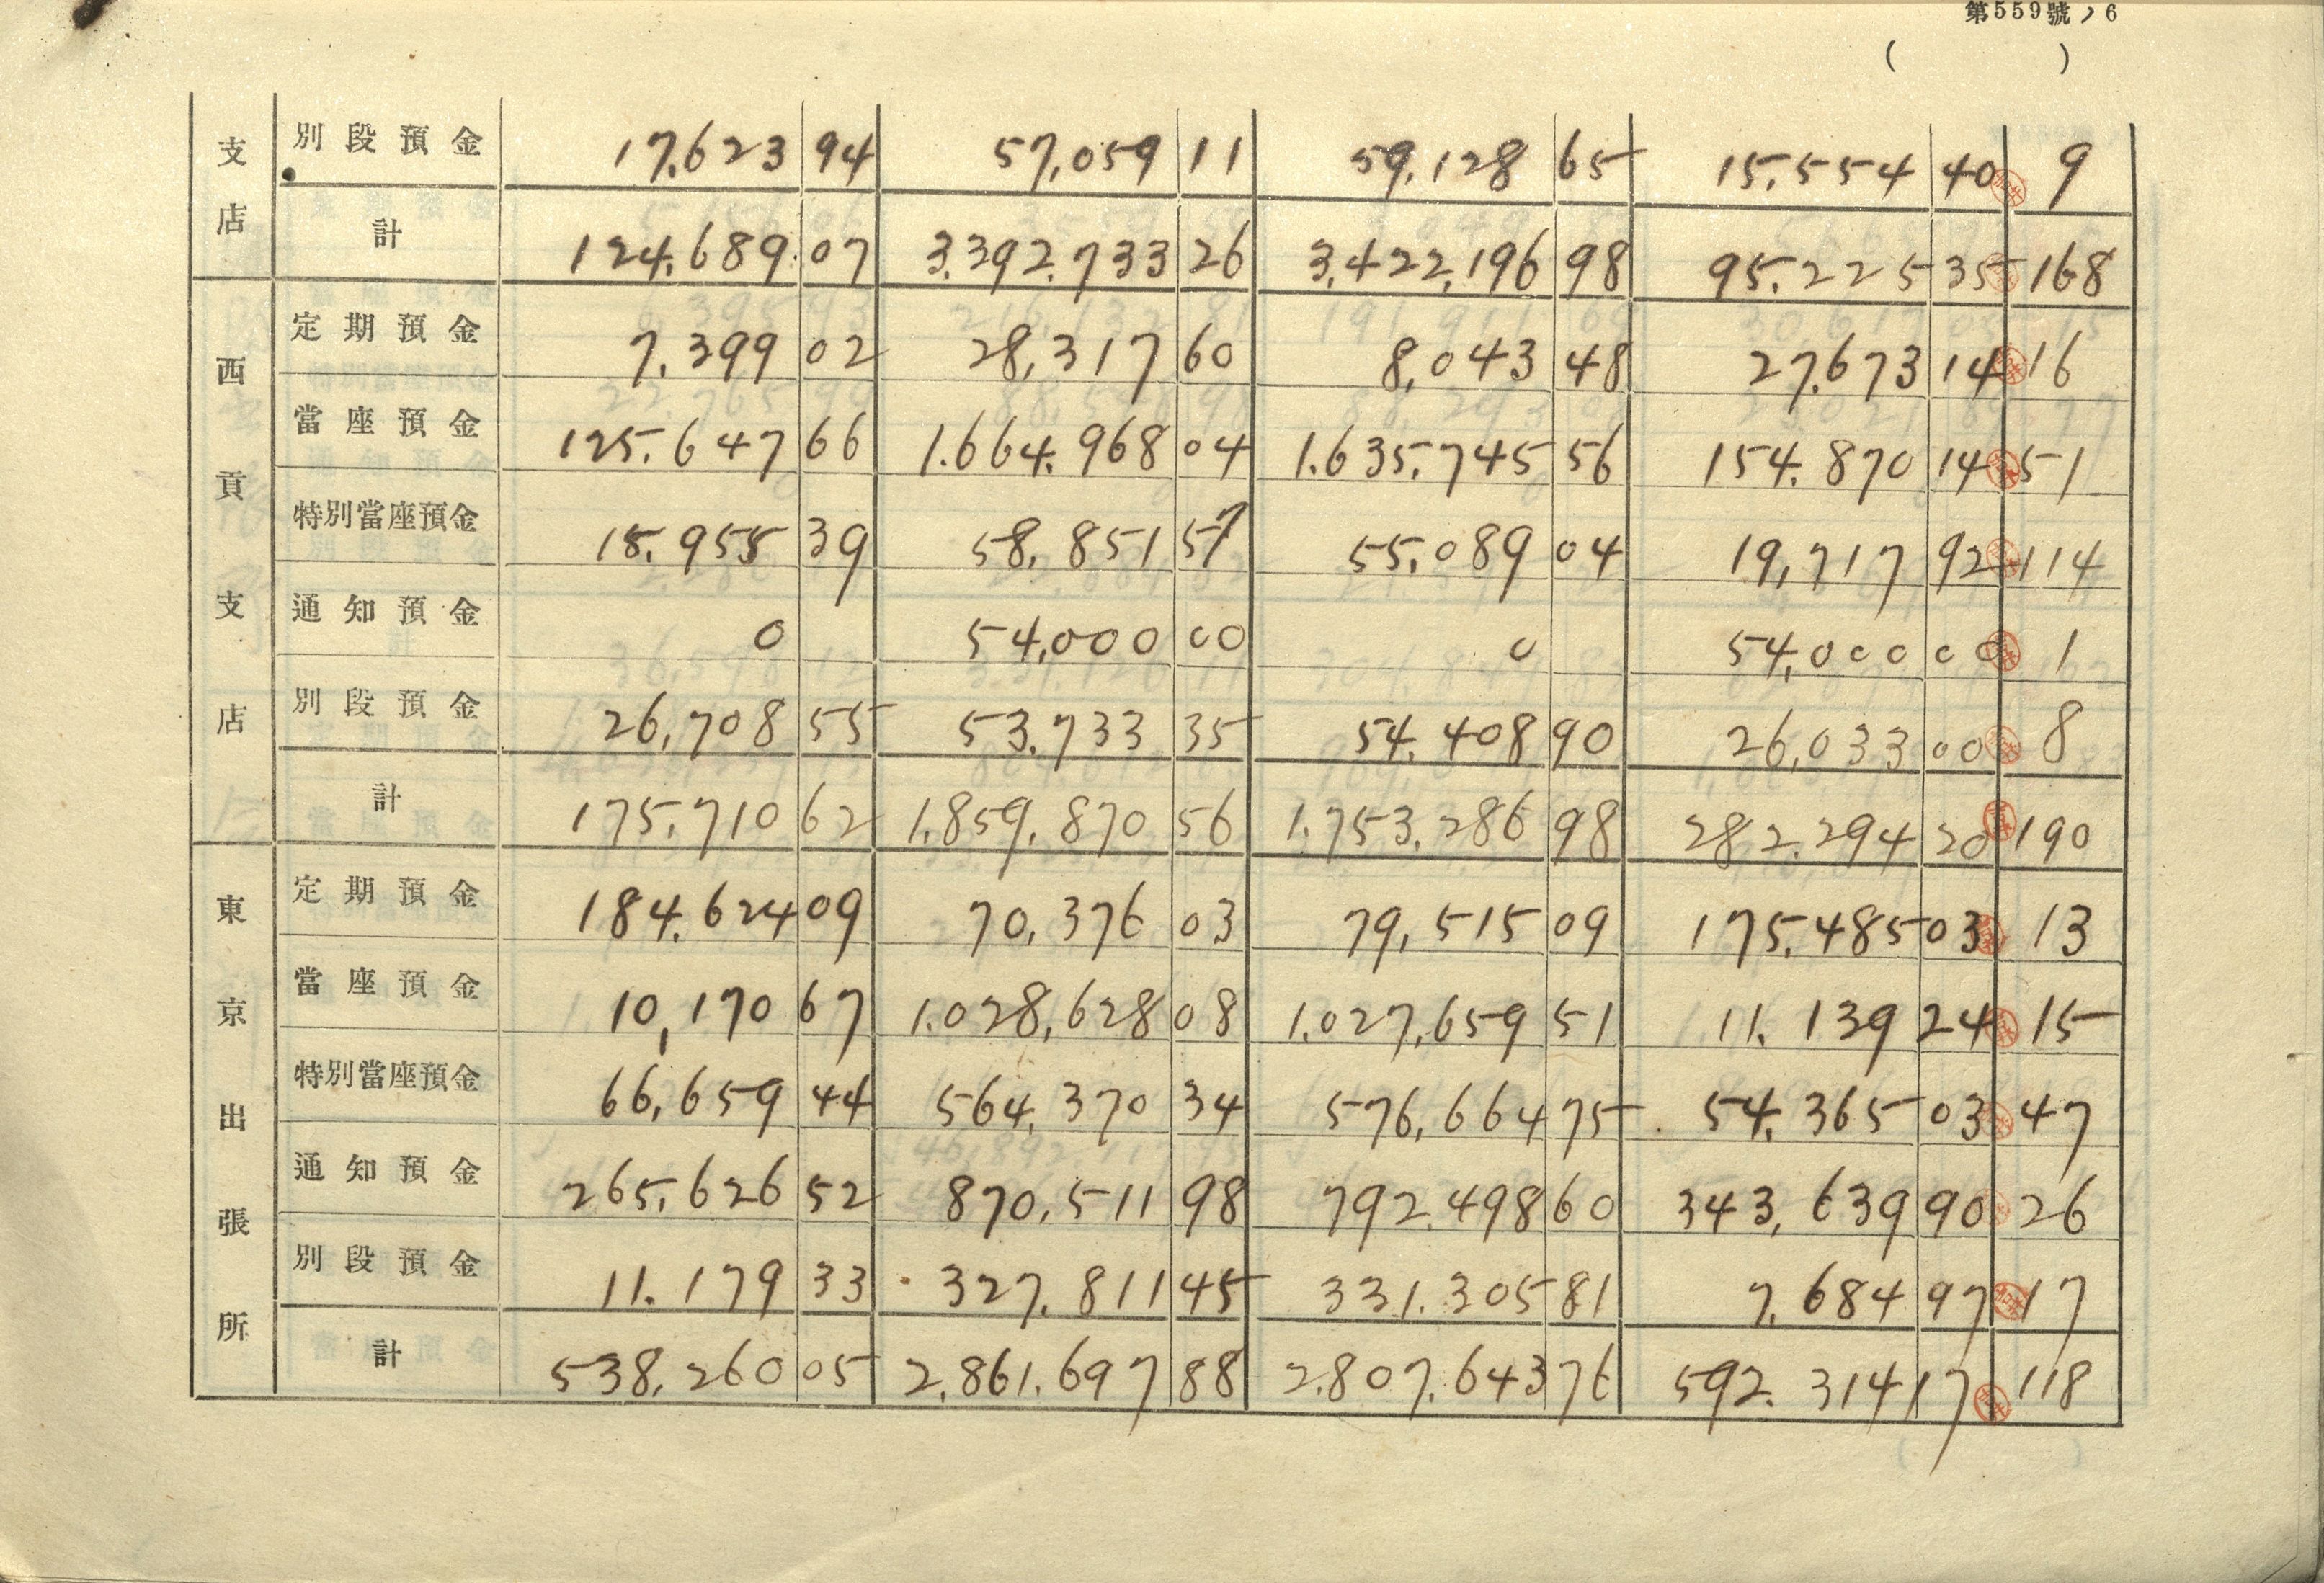 第559號ノ6
( )
支店
別段預金 17,623 94 57,059 11 59,128 65 15,554 40 9
計 124,689 07 3,392,733 26 3,422,196 98 95,225 35 168
西貢支店
定期預金 7,399 02 28,317 60 8,043 48 27,673 14 16
當座預金 125,647 66 1,664,968 04 1,635,745 56 154,870 14 51
特別當座預金 15,955 39 58,851 57 55,089 04 19,717 92 114
通知預金 0 54,000 00 0 54,000 00 1
別段預金 26,708 55 53,733 35 54,408 90 26,033 00 8
計 175,710 62 1,859,870 56 1,753,286 98 282,294 20 190
東京出張所
定期預金 184,624 09 70,376 03 79,515 09 175,485 03 13
當座預金 10,170 67 1,028,628 08 1,027,659 51 11,139 24 15
特別當座預金 66,659 44 564,370 34 576,664 75 54,365 03 47
通知預金 265,626 52 870,511 98 792,498 60 343,639 90 26
別段預金 11,179 33 327,811 45 331,305 81 7,684 97 17
計 538,260 05 2,861,697 88 2,807,643 76 592,314 17 118